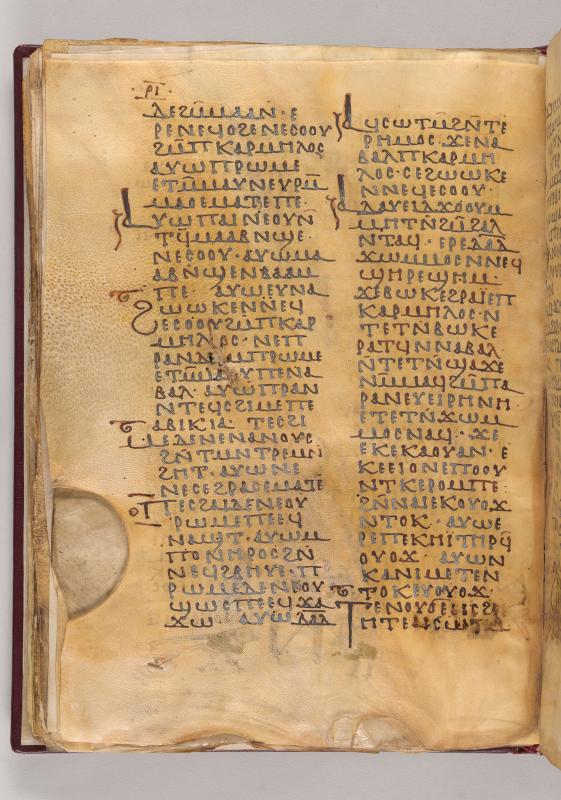 ⲣⲓ
ⲗⲉϩⲙ̅ⲙⲁⲁⲛ· ⲉ
ⲣⲉⲛⲉϥⲟϩⲉⲛⲉⲥⲟⲟⲩ
ϩⲙ̅ⲡⲕⲁⲣⲙⲏⲗⲟⲥ
ⲁⲩⲱⲡⲣⲱⲙⲉ
ⲉⲧⲙ̅ⲙⲁⲩⲛⲉⲩⲣⲙ̅
ⲙⲁⲟⲉⲙⲁⲧⲉⲡⲉ
ⲁⲩⲱⲡⲁⲓⲛⲉⲟⲩⲛ̅
ⲧϥ̅ⲙⲁⲁⲃⲛϣⲉ·
ⲛⲉⲥⲟⲟⲩ· ⲁⲩⲱⲙⲁ
ⲁⲃⲛϣⲉⲛⲃⲁⲁⲙ
ⲡⲉ· ⲁⲩⲱⲉⲩⲛⲁ
ϩⲱⲱⲕⲉⲛⲛⲉϥ
ⲉⲥⲟⲟⲩϩⲙ̅ⲡⲕⲁⲣ
ⲙⲏⲗⲟⲥ· ⲛⲉⲡ
ⲣⲁⲛⲇⲉⲙⲡⲣⲱⲙⲉ
ⲉⲧⲙ̅ⲙⲁⲩⲡⲉⲛⲁ
ⲃⲁⲗ· ⲁⲩⲱⲡⲣⲁⲛ
ⲛⲧⲉϥⲥϩⲓⲙⲉⲡⲉ
ⲁⲃⲓⲕⲓⲁ· ⲧⲉⲥϩⲓ
ⲙⲉⲇⲉⲛⲉⲛⲁⲛⲟⲩⲥ
ϩⲛ̅ⲧⲙⲛⲧⲣⲉⲙⲛ̅
ϩⲏⲧ· ⲁⲩⲱⲛⲉ
ⲛⲉⲥⲉϩⲣⲁⲥⲉⲙⲁⲧⲉ
ⲡⲉⲥϩⲁⲓⲇⲉⲛⲉⲟⲩ
ⲣⲱⲙⲉⲡⲉⲉϥ
ⲛⲁϣⲧ· ⲁⲩⲱⲙ
ⲡⲟⲛⲏⲣⲟⲥϩⲛ̅
ⲛⲉϥϩⲃⲏⲩⲉ· ⲡ
ⲣⲱⲙⲉⲇⲉⲛⲉⲟⲩ
ϣⲱⲥⲡⲉⲉϥϫⲁ
ϫⲱ· ⲁⲩⲱⲇⲁⲇ
ⲁϥⲥⲱⲧⲙ̅ϩⲛ̅ⲧⲉ
ⲣⲏⲙⲟⲥ· ϫⲉⲛⲁ
ⲃⲁⲗⲡⲕⲁⲣⲙⲏ
ⲗⲟⲥ· ⲉϩⲱⲱⲕⲉ
ⲛⲛⲉϥⲉⲥⲟⲟⲩ·
ⲇⲁⲩⲉⲓⲇϫⲟⲟⲩⲙ
ⲙⲏⲧⲛ̅ϩⲙ̅ϩⲁⲗ
ⲛⲧⲁϥ· ⲉⲣⲉⲇⲁⲇ
ϫⲱⲙⲙⲟⲥⲛⲛⲉϥ
ϣⲏⲣⲉϣⲏⲙ·
ϫⲉⲃⲱⲕⲉϩⲣⲁⲓ̈ⲉⲡ
ⲕⲁⲣⲙⲏⲗⲟⲥ· ⲛ
ⲧⲉⲧⲛ̅ⲃⲱⲕⲉ
ⲣⲁⲧϥ̅ⲛⲛⲁⲃⲁⲗ·
ⲛⲧⲉⲧⲛ̅ϣⲁϫⲉ
ⲛⲙ̅ⲙⲁϥϩⲙ̅ⲡⲁ
ⲣⲁⲛⲉⲩⲉⲓⲣⲏⲛⲏ
ⲉⲧⲉⲧⲛ̅ϫⲱⲙ
ⲙⲟⲥⲛⲁϥ· ϫⲉ
ⲉⲕⲉⲕⲁⲟⲩⲁⲛ· ⲉ
ⲕⲉⲉⲓⲟⲛⲉⲡⲟⲟⲩ
ⲛⲧⲕⲉⲣⲟⲙⲡⲉ·
ϩⲛ̅ⲛⲁⲓⲉⲕⲟⲩⲟϫ
ⲛⲧⲟⲕ· ⲁⲩⲱⲉ
ⲣⲉⲡⲉⲕⲏⲓⲧⲏⲣϥ̅
ⲟⲩⲟϫ· ⲁⲩⲱⲛ
ⲕⲁⲛⲓⲙⲉⲧⲉⲛ
ⲧⲟⲕⲉⲩⲟⲩⲟϫ·